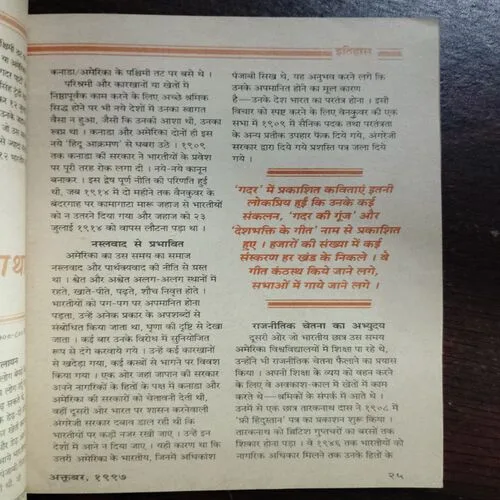 इतिहास
कनाडा/अमेरिका के पश्चिमी तट पर बसे थे ।
परिश्रमी और कारखानों या खेतों में
निष्ठापूर्वक काम करने के लिए अच्छे श्रमिक
सिद्ध होने पर भी नये देशों में उनका स्वागत
वैसा न हुआ, जैसी कि उनको आशा थी, उनका
स्वप्न था । कनाडा और अमेरिका दोनों ही इस
नये 'हिंदू आक्रमण' से घबरा उठे । १९०९
तक कनाडा की सरकार ने भारतीयों के प्रवेश
पर पूरी तरह रोक लगा दी । नये-नये कानून
बनाकर । इस द्वेष पूर्ण नीति की परिणति हुई
थी, जब १९१४ में दो महीने तक वैनकुवर के
बंदरगाह पर कामागाटा मारू जहाज से भारतीयों
को न उतरने दिया गया और जहाज को २३
जुलाई १९१४ को वापस लौटना पड़ा था ।
नस्लवाद से प्रभावित
अमेरिका का उस समय का समाज
नस्लवाद और पार्थक्यवाद की नीति से प्रस्त
था । श्वेत और अश्वेत अलग-अलग स्थानों में
रहते, खाते-पीते, पढ़ते, शौच निवृत्त होते ।
भारतीयों को पग-पग पर अपमानित होना
पड़ता, उन्हें अनेक प्रकार के अपशब्दों से
संबोधित किया जाता था, घृणा की दृष्टि से देखा
जाता । कई बार उनके विरोध में सुनियोजित
रूप से दंगे करवाये गये । उन्हें कई कारखानों
से खदेड़ा गया, कई कस्बों से भागने पर विवश
किया गया । एक ओर जहां जापान की सरकार
अपने नागरिकों के हितों के पक्ष में कनाडा और
अमेरिका की सरकारों को चेतावनी देती थी,
वहीं दूसरी ओर भारत पर शासन करनेवाली
अंगरेजी सरकार दबाव डाल रही थी कि
भारतीयों पर कड़ी नजर रखी जाए । उन्हें इन
देशों में आने न दिया जाए । यही कारण था कि
उत्तरी अमेरिका के भारतीय, जिनमें अधिकांश
पंजाबी सिख थे, यह अनुभव करने लगे कि
उनके अपमानित होने का मूल कारण
है—उनके देश भारत का परतंत्र होना । इसी
विचार को स्पष्ट करने के लिए वैनकुवर की एक
सभा में १९०९ में सैनिक पदक तथा परतंत्रता
के अन्य प्रतीक उपहार फेंक दिये गये, अंगरेजी
सरकार द्वारा दिये गये प्रशस्ति पत्र जला दिये
गये ।
'गदर' में प्रकाशित कविताएं इतनी
लोकप्रिय हुईं कि उनके कई
संकलन, 'गदर की गूंज' और
'देशभक्ति के गीत' नाम से प्रकाशित
हुए । हजारों की संख्या में कई
संस्करण हर खंड के निकले । वे
गीत कंठस्थ किये जाने लगे,
सभाओं में गाये जाने लगे ।
राजनीतिक चेतना का अभ्युदय
दूसरी ओर जो भारतीय छात्र उस समय
अमेरिका विश्वविद्यालयों में शिक्षा पा रहे थे,
उन्होंने भी राजनीतिक चेतना फैलाने का प्रयास
किया । अपनी शिक्षा के व्यय को वहन करने
के लिए वे अवकाश-काल में खेतों में काम
करते थे—श्रमिकों के संपर्क में आते थे ।
उनमें से एक छात्र तारकनाथ दास ने १९०८ में
'फ्री हिंदुस्तान' पत्र का प्रकाशन शुरू किया ।
तारकनाथ को ब्रिटिश गुप्तचरों का बरसों तक
शिकार होना पड़ा । वे १९४६ तक भारतीयों को
नागरिक अधिकार मिलने तक उनके हितों के
अक्तूबर, १९९७
२५